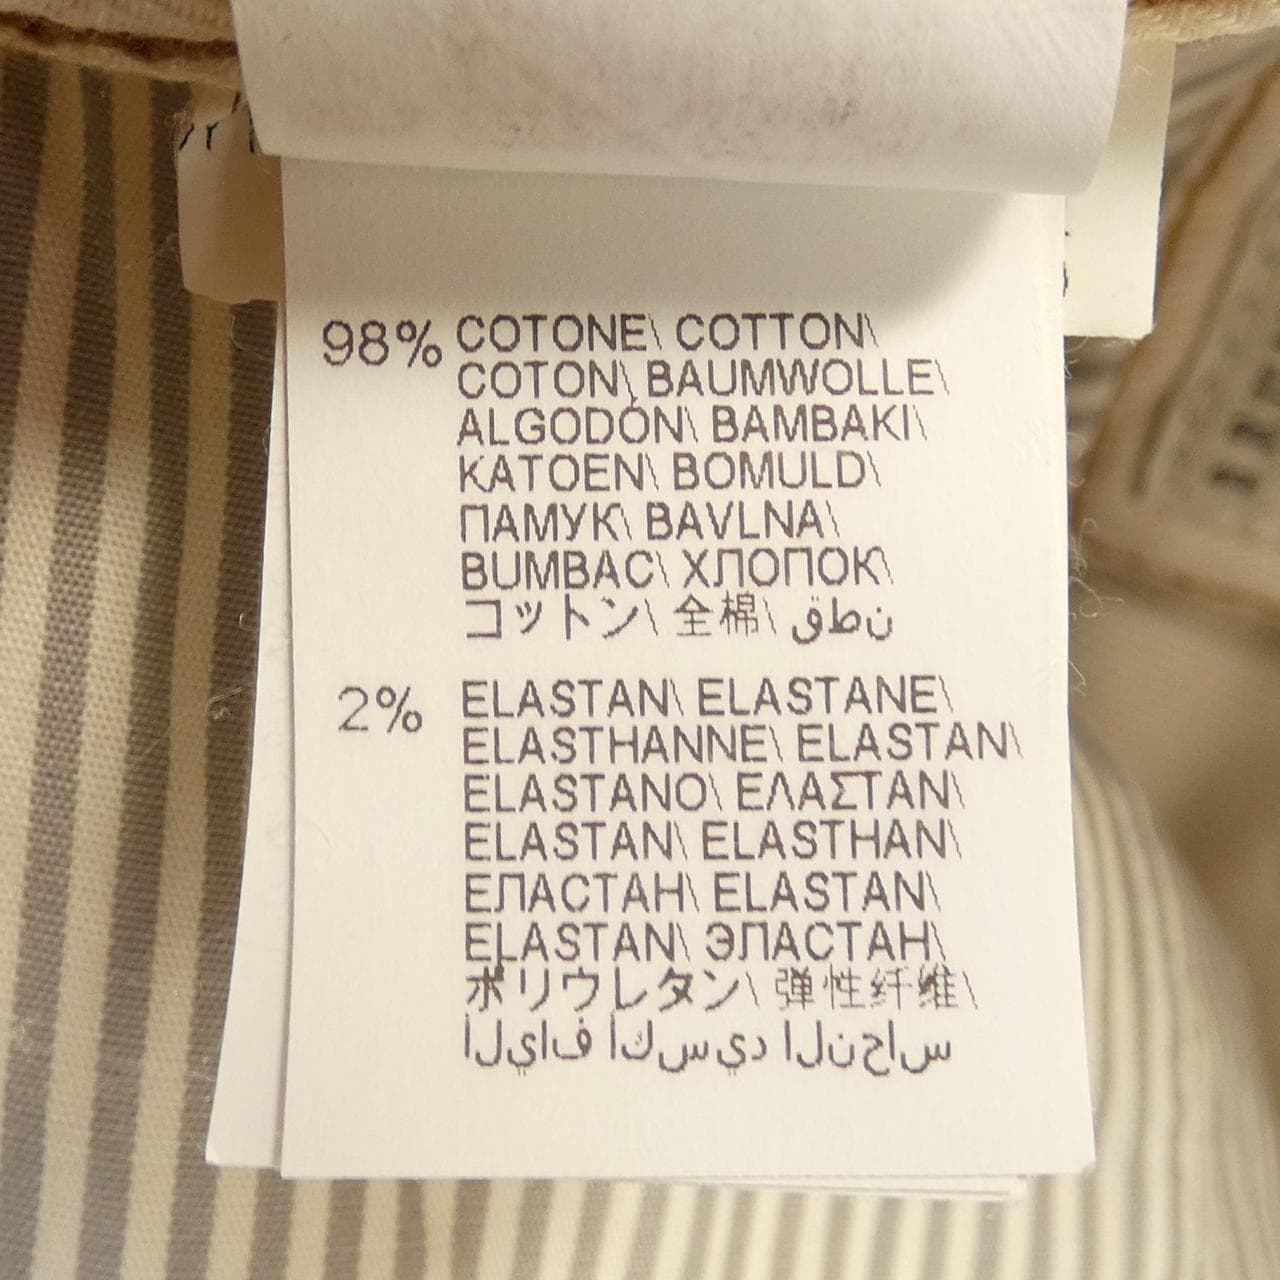 98% COTONE\ COTTON\
COTON\ BAUMWOLLE\
ALGODÓN\ BAMBAKI\
KATOEN\ BOMULD\
ПАМУК\ BAVLNA\
BUMBAC\ ХЛОПОК\
コットン\ 全棉\ قطن
2% ELASTAN\ ELASTANE\
ELASTHANNE\ ELASTAN\
ELASTANO\ ΕΛΑΣΤΑΝ\
ELASTAN\ ELASTHAN\
ЕЛАСТАН\ ELASTAN\
ELASTAN\ ЭЛАСТАН\
ポリウレタン\ 弹性纤维\
ساحنلا ديسكأ فايلا